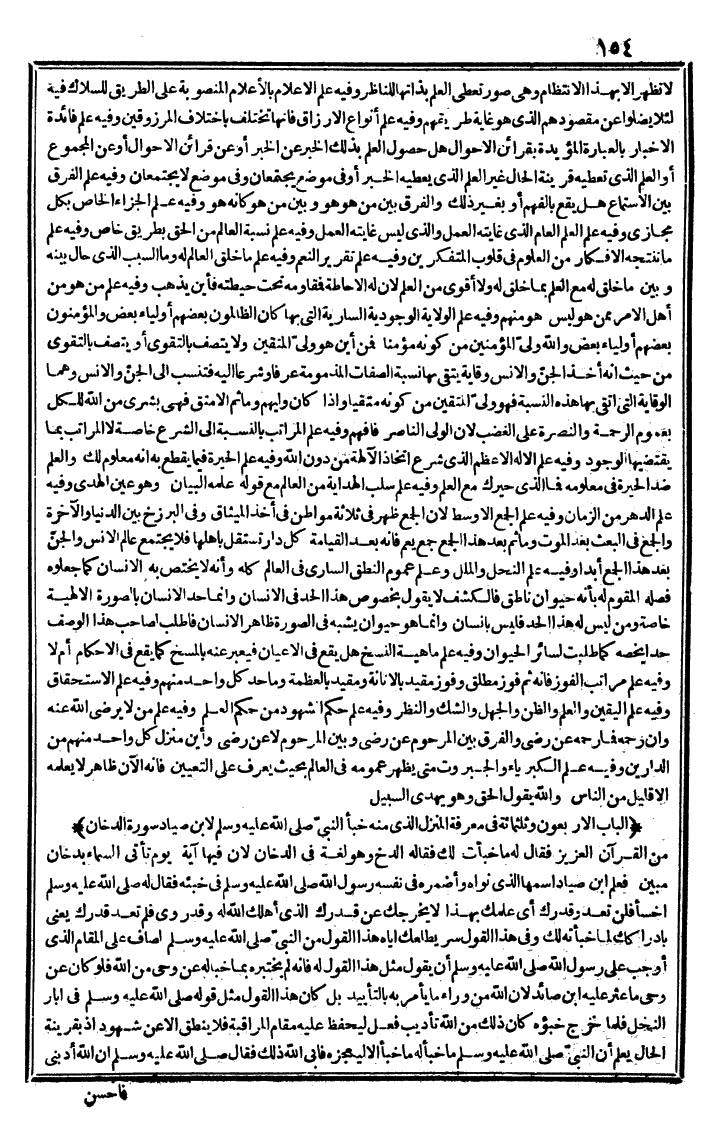 ١٥٤
لا تظهر الا بهذا الانتظام وهى صور تعطى العلم بذاتها للناظر وفيه علم الاعلام بالأعلام المنصوبة على الطريق للسلاك فيه
لئلا يضلوا عن مقصودهم الذى هو غاية طريقهم وفيه علم أنواع الارزاق فانها تختلف باختلاف المرزوقين وفيه علم فائدة
الاخبار بالعبارة المؤيدة بقرائن الاحوال هل حصول العلم بذلك الخبر عن الخبر أو عن قرائن الاحوال أو عن المجموع
أو العلم الذى تعطيه قرينة الحال غير العلم الذى يعطيه الخبر أو فى موضع يجتمعان وفى موضع لا يجتمعان وفيه علم الفرق
بين الاستماع هل يقع بالفهم أو بغير ذلك والفرق بين من هو هو وبين من هو كانه هو وفيه علم الجزاء الخاص بكل
مجازى وفيه علم العلم العام الذى غايته العمل والذى ليس غايته العمل وفيه علم نسبة العالم من الحق بطريق خاص وفيه علم
ما تنتجه الافكار من العلوم فى قلوب المتفكرين وفيه علم تقرير النعم وفيه علم ما خلق العالم له وما السبب الذى حال بينه
وبين ما خلق له مع العلم بما خلق له ولا أقوى من العلم لان له الاحاطة فقاومه تحت حيطته فأين يذهب وفيه علم من هو من
أهل الامر ممن هو ليس هو منهم وفيه علم الولاية الوجودية السارية التى بها كان الظالمون بعضهم أولياء بعض والمؤمنون
بعضهم أولياء بعض والله ولىّ المؤمنين من كونه مؤمنا فمن أين هو ولىّ المتقين ولا يتصف بالتقوى أو يتصف بالتقوى
من حيث انه أخذ الجنّ والانس وقاية يتقى بها نسبة الصفات المذمومة عرفا وشرعا اليه فتنسب الى الجنّ والانس وهما
الوقاية التى اتقى بها هذه النسبة فهو ولىّ المتقين من كونه متقيا واذا كان وليهم وما ثم الا متق فهى بشرى من الله للكل
بعموم الرحمة والنصرة على الغضب لان الولى الناصر فافهم وفيه علم المراتب بالنسبة الى الشرع خاصة لا المراتب بما
يقتضيها الوجود وفيه علم الاله الاعظم الذى شرع اتخاذ الآلهة من دون الله وفيه علم الحيرة فيما يقطع به انه معلوم لك والعلم
ضد الحيرة فى معلومه فما الذى حيرك مع العلم وفيه علم سلب الهداية من العالم مع قوله علمه البيان وهو عين الهدى وفيه
علم الدهر من الزمان وفيه علم الجمع الاوسط لان الجمع ظهر فى ثلاثة مواطن فى أخذ الميثاق وفى البرزخ بين الدنيا والآخرة
والجمع فى البعث بعد الموت وما ثم بعد هذا الجمع جمع يعم فانه بعد القيامة كل دار تستقل باهلها فلا يجتمع عالم الانس والجنّ
بعد هذا الجمع أبدا وفيه علم النحل والملل وعلم عموم النطق السارى فى العالم كله وأنه لا يختص به الانسان كما جعلوه
فصله المقوّم له بأنه حيوان ناطق فالكشف لا يقول بخصوص هذا الحد فى الانسان وانما حد الانسان بالصورة الالهية
خاصة ومن ليس له هذا الحد فليس بانسان وانما هو حيوان يشبه فى الصورة ظاهر الانسان فاطلب لصاحب هذا الوصف
حدا يخصه كما طلبت لسائر الحيوان وفيه علم ماهية النسخ هل يقع فى الاعيان فيعبر عنه بالمسخ كما يقع فى الاحكام أم لا
وفيه علم مراتب الفوز فانه ثم فوز مطلق وفوز مقيد بالانانة ومقيد بالعظمة وما حد كل واحد منهم وفيه علم الاستحقاق
وفيه علم اليقين والعلم والظن والجهل والشك والنظر وفيه علم حكم الشهود من حكم العلم وفيه علم من لا يرضى الله عنه
وان رحمه فارحمه عن رضى والفرق بين المرحوم عن رضى وبين المرحوم لا عن رضى وأين منزل كل واحد منهم من
الدارين وفيه علم الكبرياء والجبروت متى يظهر عمومه فى العالم بحيث يعرف على التعيين فانه الآن ظاهر لا يعلمه
الا قليل من الناس والله يقول الحق وهو يهدى السبيل
﴿الباب الاربعون وثلثمائة فى معرفة المنزل الذى منه خبأ النبىّ صلى الله عليه وسلم لابن صياد سورة الدخان﴾
من القرآن العزيز فقال له ما خبأت لك فقال الدخ وهو لغة فى الدخان لان فيها آية يوم تأتى السماء بدخان
مبين فعلم ابن صياد اسمها الذى نواه وأضمره فى نفسه رسول الله صلى الله عليه وسلم فى خبئه فقال له صلى الله عليه وسلم
اخسأ فلن تعدو قدرك أى علمك بهذا لا يخرجك عن قدرك الذى أهلك الله له وقد روى فلم تعد قدرك يعنى
بادراكك لما خبأته لك وفى هذا القول سر يطلعك اياه هذا القول من النبىّ صلى الله عليه وسلم اصاف على المقام الذى
أوجب على رسول الله صلى الله عليه وسلم أن يقول مثل هذا القول له فانه لم يختبره بما خبا له عن وحى من الله فلو كان عن
وحى ما عثر عليه ابن صائد لان الله من وراء ما يأمر به بالتأييد بل كان هذا القول مثل قوله صلى الله عليه وسلم فى ابار
النخل فلما خرج خبؤه كان ذلك من الله تأديب فعل ليحفظ عليه مقام المراقبة فلا ينطق الا عن شهود اذ بقرينة
الحال يعلم أن النبىّ صلى الله عليه وسلم ما خبأ له ما خبأ الا ليعجزه فابى الله ذلك فقال صلى الله عليه وسلم ان الله أدبنى
فاحسن